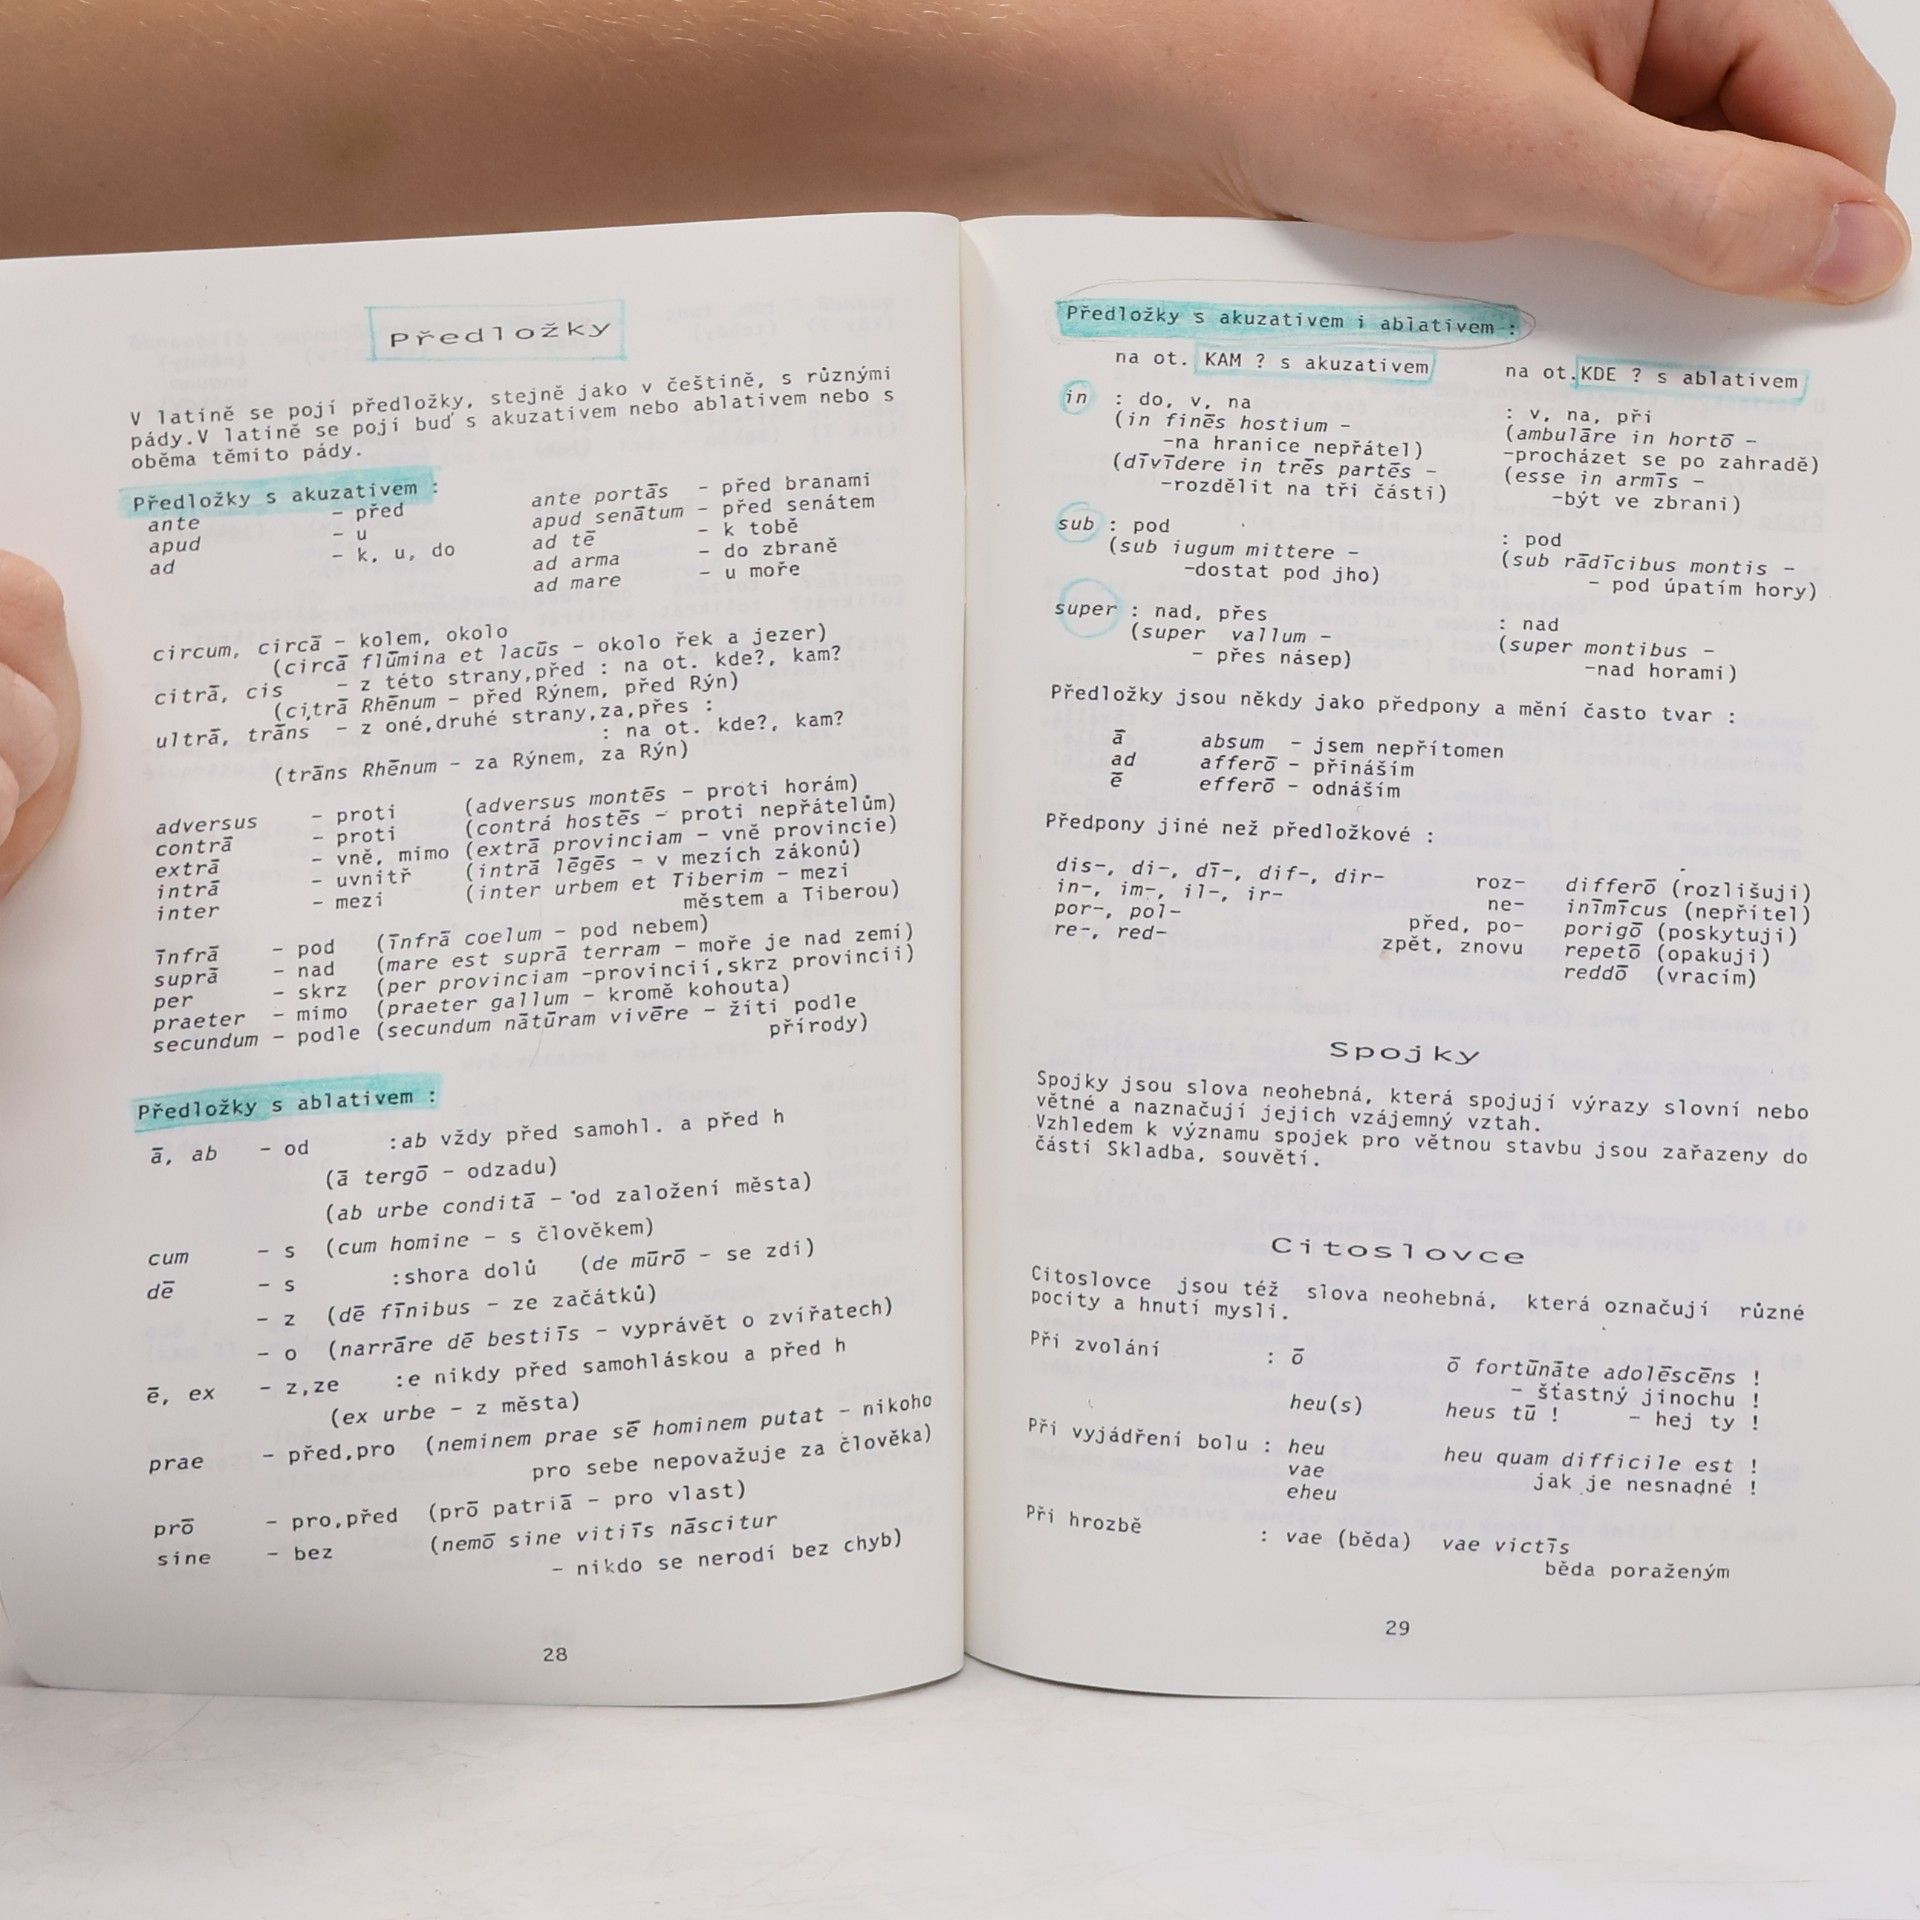 Předložky
V latině se pojí předložky, stejně jako v češtině, s různými
pády.V latině se pojí buď s akuzativem nebo ablativem nebo s
oběma těmito pády.
Předložky s akuzativem :
ante - před ante portās - před branami
apud - u apud senātum - před senátem
ad - k, u, do ad tē - k tobě
ad arma - do zbraně
ad mare - u moře
circum, circā - kolem, okolo
(circā flūmina et lacūs - okolo řek a jezer)
citrā, cis - z této strany,před : na ot. kde?, kam?
(citrā Rhēnum - před Rýnem, před Rýn)
ultrā, trāns - z oné,druhé strany,za,přes :
: na ot. kde?, kam?
(trāns Rhēnum - za Rýnem, za Rýn)
adversus - proti (adversus montēs - proti horám)
contrā - proti (contrá hostēs - proti nepřátelům)
extrā - vně, mimo (extrā provinciam - vně provincie)
intrā - uvnitř (intrā lēgēs - v mezích zákonů)
inter - mezi (inter urbem et Tiberim - mezi
městem a Tiberou)
īnfrā - pod (īnfrā coelum - pod nebem)
suprā - nad (mare est suprā terram - moře je nad zemí)
per - skrz (per provinciam -provincií,skrz provincii)
praeter - mimo (praeter gallum - kromě kohouta)
secundum - podle (secundum nātūram vivēre - žíti podle
přírody)
Předložky s ablativem :
ā, ab - od :ab vždy před samohl. a před h
(ā tergō - odzadu)
(ab urbe conditā - od založení města)
cum - s (cum homine - s člověkem)
dē - s :shora dolů (de mūrō - se zdi)
- z (dē fīnibus - ze začátků)
- o (narrāre dē bestiīs - vyprávět o zvířatech)
ē, ex - z,ze :e nikdy před samohláskou a před h
(ex urbe - z města)
prae - před,pro (neminem prae sē hominem putat - nikoho
pro sebe nepovažuje za člověka)
prō - pro,před (prō patriā - pro vlast)
sine - bez (nemō sine vitiīs nāscitur
- nikdo se nerodí bez chyb)
28
Předložky s akuzativem i ablativem :
na ot. KAM ? s akuzativem na ot.KDE ? s ablativem
in : do, v, na : v, na, při
(in finēs hostium - (ambulāre in hortō -
-na hranice nepřátel) -procházet se po zahradě)
(dīvīdere in trēs partēs - (esse in armīs -
-rozdělit na tři části) -být ve zbrani)
sub : pod : pod
(sub iugum mittere - (sub rādīcibus montis -
-dostat pod jho) - pod úpatím hory)
super : nad, přes : nad
(super vallum - (super montibus -
- přes násep) -nad horami)
Předložky jsou někdy jako předpony a mění často tvar :
ā absum - jsem nepřítomen
ad afferō - přináším
ē efferō - odnáším
Předpony jiné než předložkové :
dis-, di-, dī-, dif-, dir- roz- differō (rozlišuji)
in-, im-, il-, ir- ne- inīmīcus (nepřítel)
por-, pol- před, po- porigō (poskytuji)
re-, red- zpět, znovu repetō (opakuji)
reddō (vracím)
Spojky
Spojky jsou slova neohebná, která spojují výrazy slovní nebo
větné a naznačují jejich vzájemný vztah.
Vzhledem k významu spojek pro větnou stavbu jsou zařazeny do
části Skladba, souvětí.
Citoslovce
Citoslovce jsou též slova neohebná, která označují různé
pocity a hnutí mysli.
Při zvolání : ō ō fortūnāte adolēscēns !
- šťastný jinochu !
heu(s) heus tū ! - hej ty !
Při vyjádření bolu : heu heu quam difficile est !
vae jak je nesnadné !
eheu
Při hrozbě : vae (běda) vae victīs
běda poraženým
29